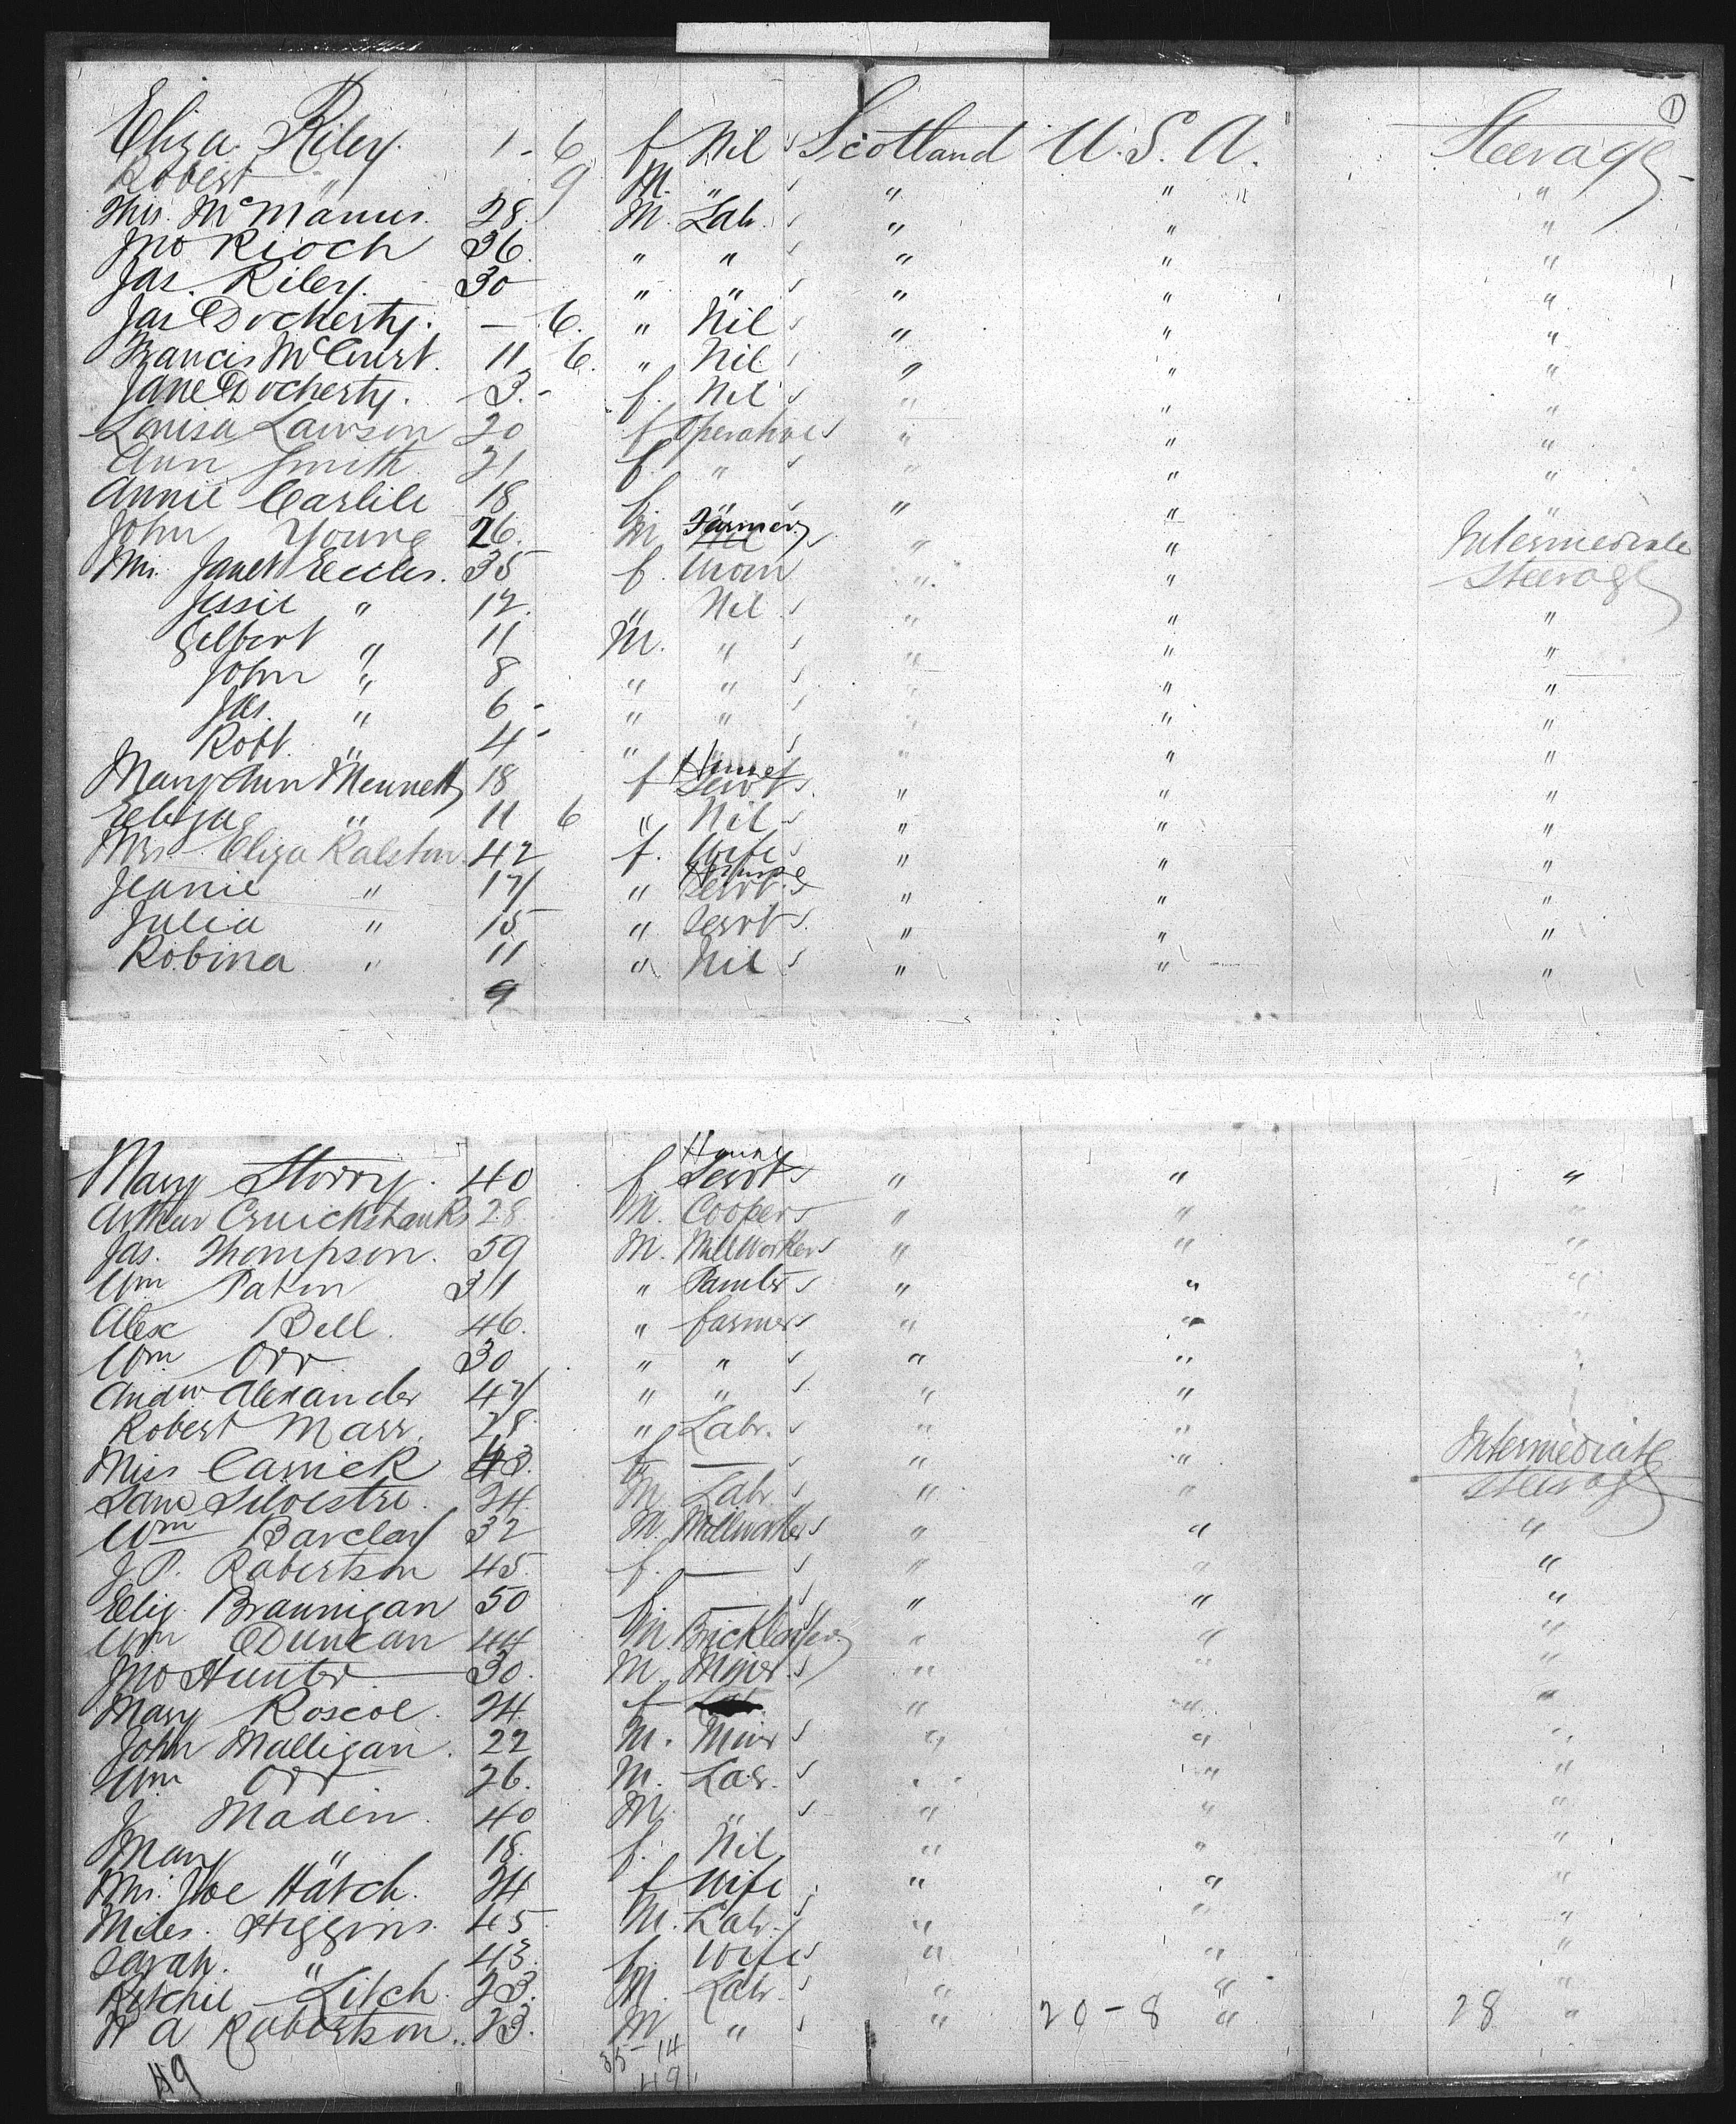 ①
Eliza Riley. 1 - 6 f Nil s Scotland U. S. A. Steerage
Robert " 9 M. " s " " "
Ths. McManus. 28. M. Labr. s " " "
Jno Rioch 36. " " s " " "
Jas. Riley. 30 " " s " " "
Jas Docherty. — 6. " Nil s " " "
Francis McCourt. 11 6. " Nil s " " "
Jane Docherty. 3. - f. Nil s " " "
Louisa Lawson 20 f Operative s " " "
Ann Smith 21 f. " s " " "
Annie Carlile 18 f. " s " " "
John Young 26. M Farmer s " " Intermediate
Mrs. Janet Eccles. 35 f. Wom " " Steerage
Jessie " 12. " Nil s " "
Gilbert " 11 M. " s " " "
John " 8 " " s " " "
Jas. " 6 - " " s " " "
Robt. " 4 - " " s " " "
Mary Ann Mennett 18 f House Servt s. " " "
Eliza " 11 6 " Nil s " " "
Mrs Eliza Ralston. 42 f. Wife s " " "
Jeanie " 17 " House Servt. s " " "
Julia " 15 " Servt s. " " "
Robina " 11 " Nil s " " "
9
Mary Storry. 40 f House Servt s " " "
Arthur Cruickshanks 28 M. Cooper s " " "
Jas. Thompson. 59 M. Millworker s " " "
Wm Paton 31 " Painter s " " "
Alex Bell. 46. " farmer s " "
Wm Orr 30 " " s " "
Andw Alexander 47 " " s. " "
Robert Marr. 28. " Labr. s " "
Miss Carrick 43. f — s " " Intermediate
Silvestri. 24. M Labr. s " " Steerage
Wm Barclay 32 M. Millworker s " " "
J. P. Robertson 45. f. — s " " "
Eliz. Brannigan 50 f. — s " " "
Wm Duncan 44 M. Bricklayer " " "
Jno Hunter 30. M. Miner. s " " "
Mary Roscoe. 24. f " " "
John Malligan. 22 M. Miner s " " "
Wm Orr. 26. M. Labr. s " " "
J Maden. 40 M. " s " " "
Mary " 18. f. Nil " " "
Mrs. Joe Hatch. 24 f Wife " " "
Miles. Higgins. 45. M. Labr. s " " "
Sarah. " 43. f. Wife s " " "
Ritchie Litch. 23. M. Labr. s " " "
W A Robertson.. 23. M " s " 20 - 8 " 28 "
35 - 14
49 49